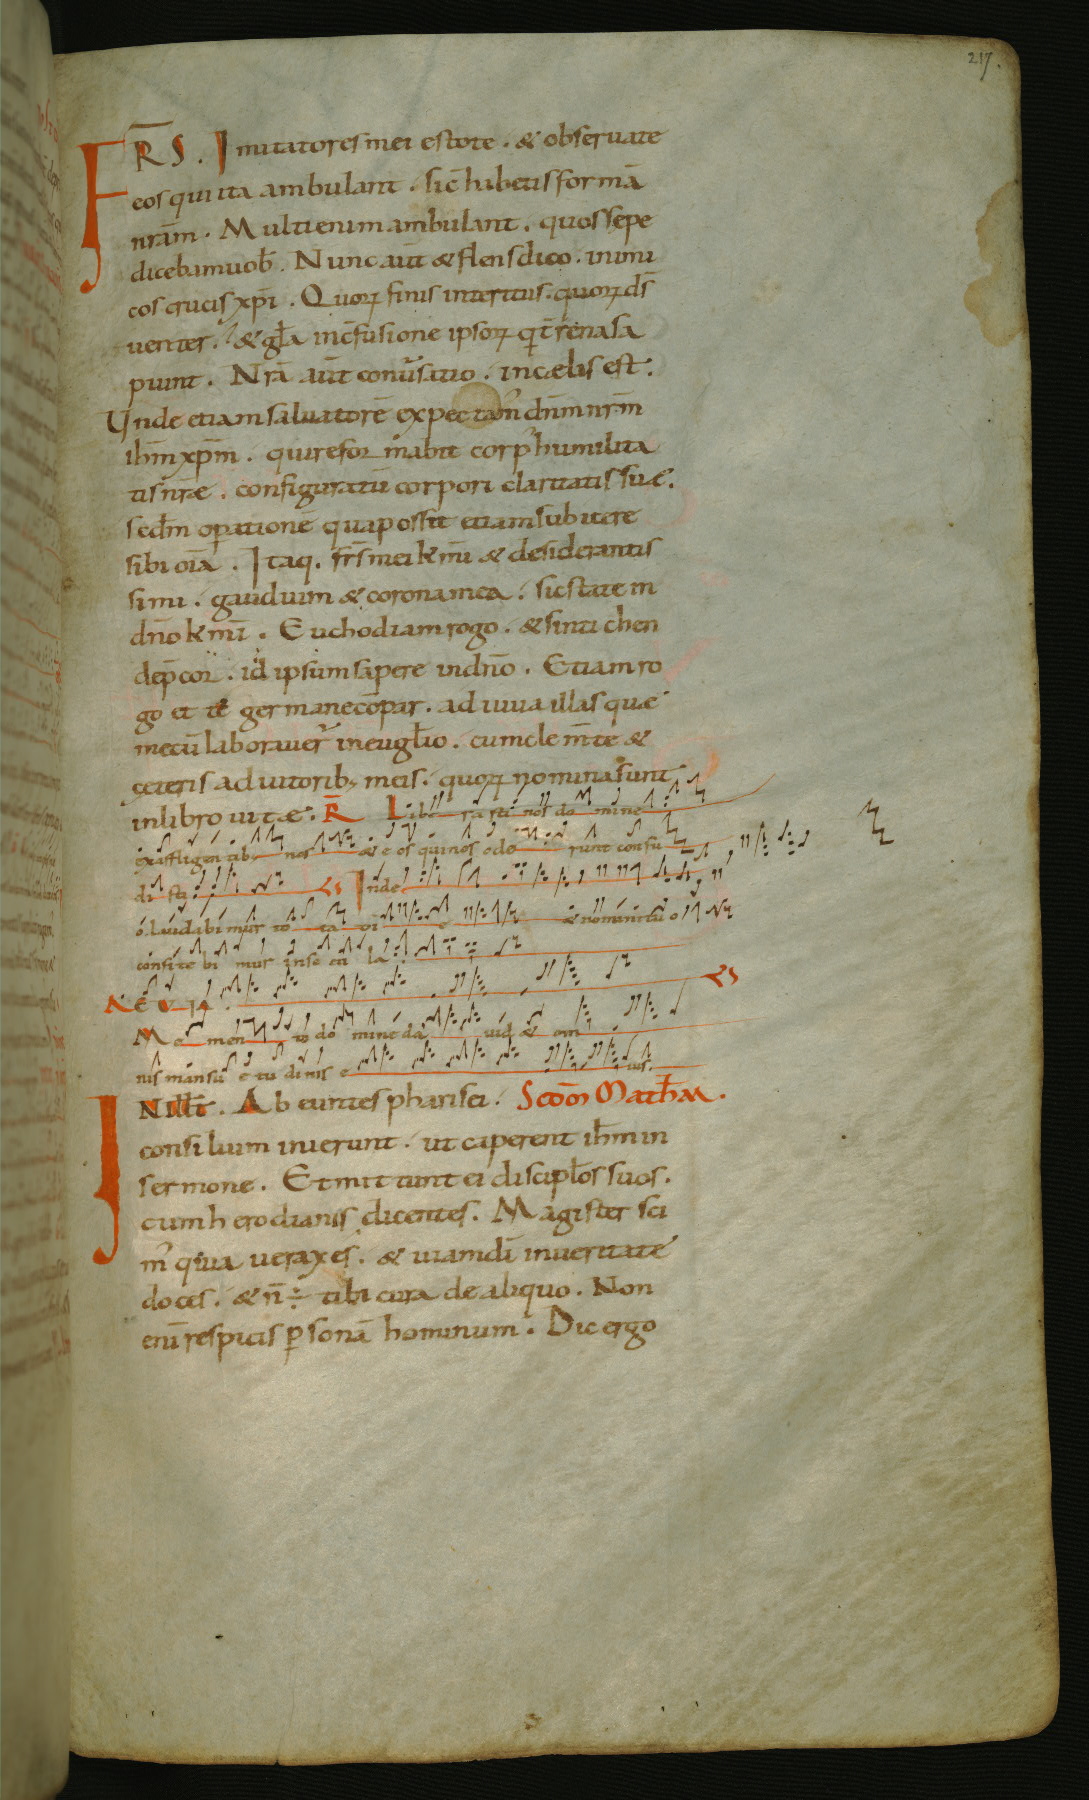 217.
FR̄S. Imitatores mei estote. & obseruate
eos qui ita ambulant. sic̄ habetis formā
nrām. Multi enim ambulant. quos sepe
dicebam uob̄. Nunc aūt & flens dico. inimi
cos crucis xp̄i. Quoꝝ finis interitus. quoꝝ d̄s
uenter. & gl̄a in c̄fusione ipsoꝝ q̄ t̄rena sa
piunt. Nrā aūt conūsatio. in cælis est:
Unde etiam saluatorē expectam᷒ dn̄m nr̄m
ih̄m xp̄m. qui reformabit corp᷒ humilita
tis nr̄æ. configuratū corpori claritatis suæ.
scd̄m oꝑationē qua possit etiam subicere
sibi oīa. Itaq. fr̄s mei km̄i & desiderantis
simi. gaudium & corona mea. sic state in
dn̄o km̄i. Euchodiam rogo. & sintichen
dep̄cor. id ipsum sapere in dn̄o. Etiam ro
go et te germane cōpar. adiuua illas quæ
mecū laborauer̄ in eugl̄io. cum clem̄te &
ceteris adiutorib; meis. quoꝝ nomina sunt
in libro uitæ. R̄ Liberasti nos domine
ex affligentib; nos & eos qui nos oderunt confu
disti Inde
o laudabimur tota di e & nomini tuo
confitebimur in secula
AEVIA.
Memento domine dauid & om
nis mansuetudinis eius.
IN ill̄ t̄. Abeuntes pharisei. Scd̄m Math̄m.
consilium inierunt. ut caperent ih̄m in
sermone. Et mittunt ei discipl̄os suos.
cum herodianis dicentes. Magister sci
m᷒ quia uerax es. & uiam dī in ueritate
doces. & n̄ ÷ tibi cura de aliquo. Non
enī respicis ꝑsonā hominum. Dic ergo